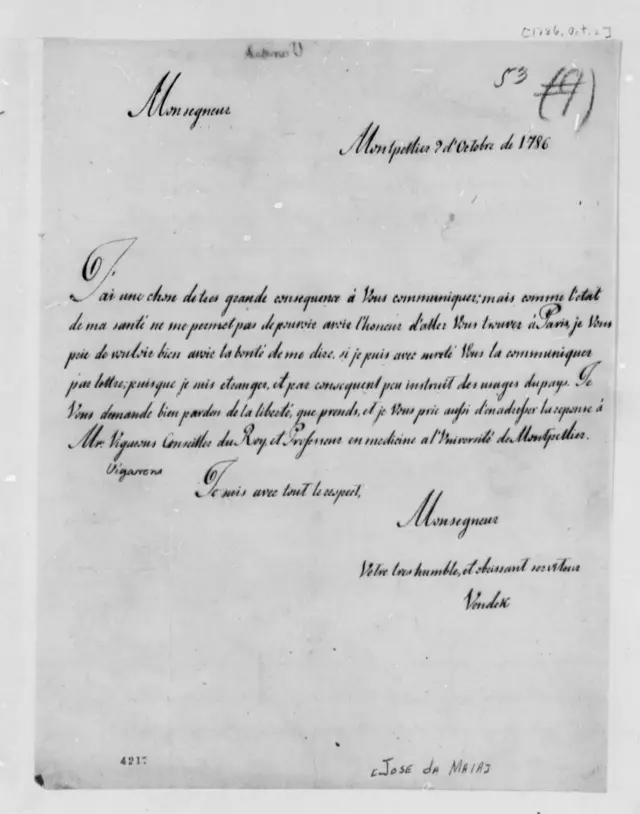 [1786, Oct. 2]
53 (9)
Monsegneur
Montpellier 2 d'Octobre de 1786
J'ai une chose de tres grande consequence à Vous communiquer; mais comme l'etat
de ma santé ne me permet pas de pouvoir avoir l'honeur d'aller Vous trouver à Paris, je Vous
prie de vouloir bien avoir la bonté de me dire, si je puis avec sureté Vous la communiquer
par lettre; puisque je suis etranger, et par consequent peu instruit des usages du pays. Je
Vous demande bien pardon de la liberté, que prends, et je Vous prie aussi d'en adresser la reponse à
Mr. Vigarons Conseiller du Roy, et Professeur en medicine a l'Université de Montpellier.
Vigarrens
Je suis avec tout le respect,
Monsegneur
Votre tres humble, et obeissant serviteur
Vendek
4217
[JOSE da MAIA]